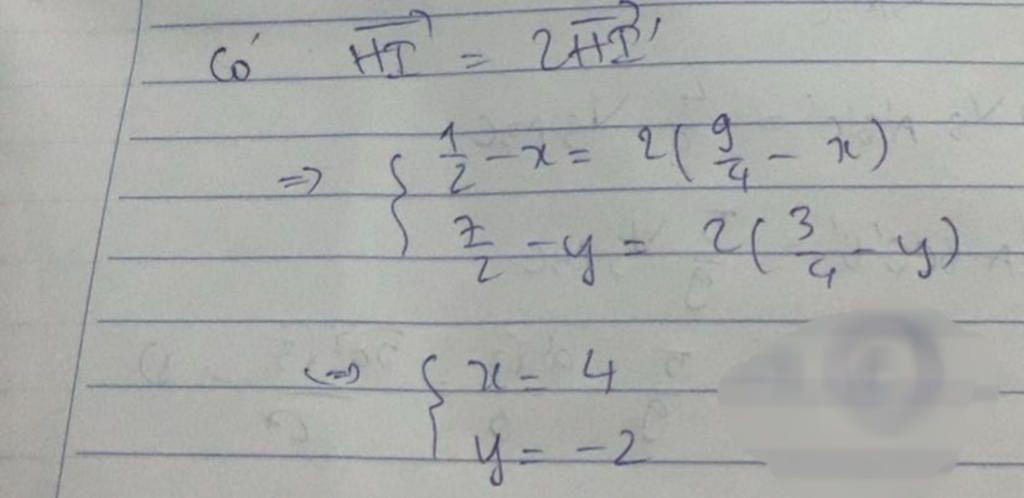 Có \overrightarrow{HI} = 2\overrightarrow{HI'}
⇒ { 1/2 - x = 2(9/4 - x)
7/2 - y = 2(3/4 - y)
⇔ { x = 4
y = -2